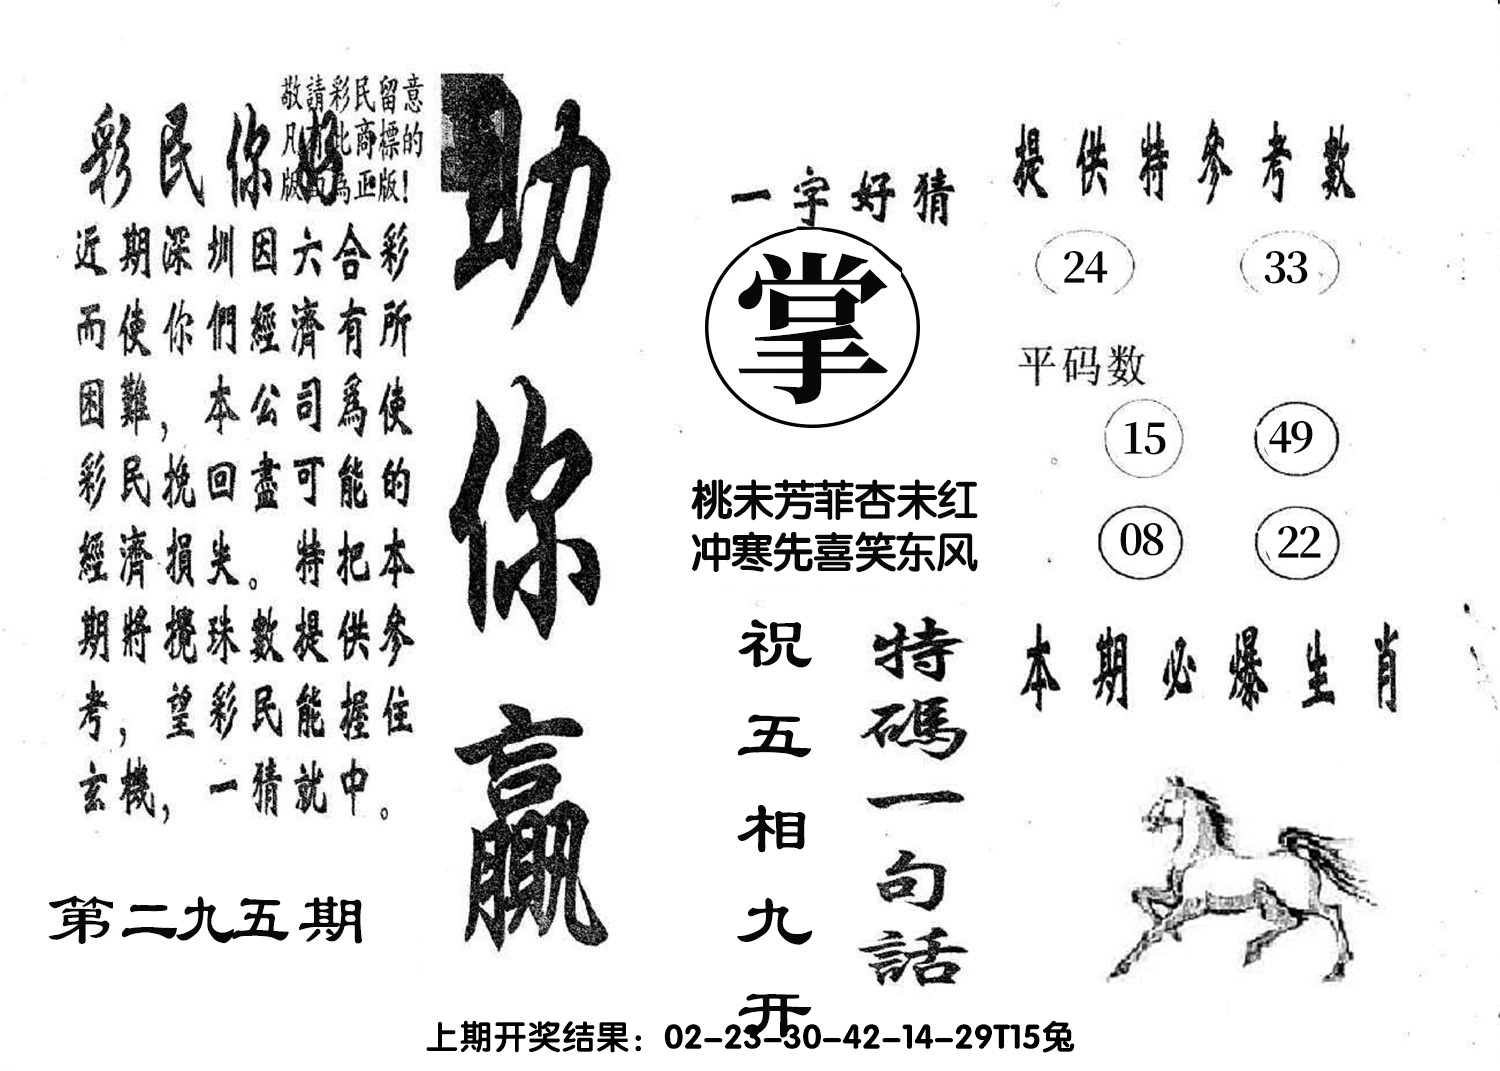 敬請彩民留意
凡有此商標的
版面為正版！
彩民你好
近期深圳因六合彩
而使你們經濟有所
困難，本公司爲使
彩民挽回盡可能的
經濟損失。特把本
期將攪珠數提供參
考，望彩民能握住
玄機，一猜就中。
第二九五期
助你贏
一字好猜
掌
桃未芳菲杏未红
冲寒先喜笑东风
特碼一句話
祝五相九开
提供特參考數
24 33
平码数
15 49
08 22
本期必爆生肖
上期开奖结果：02-23-30-42-14-29T15兔